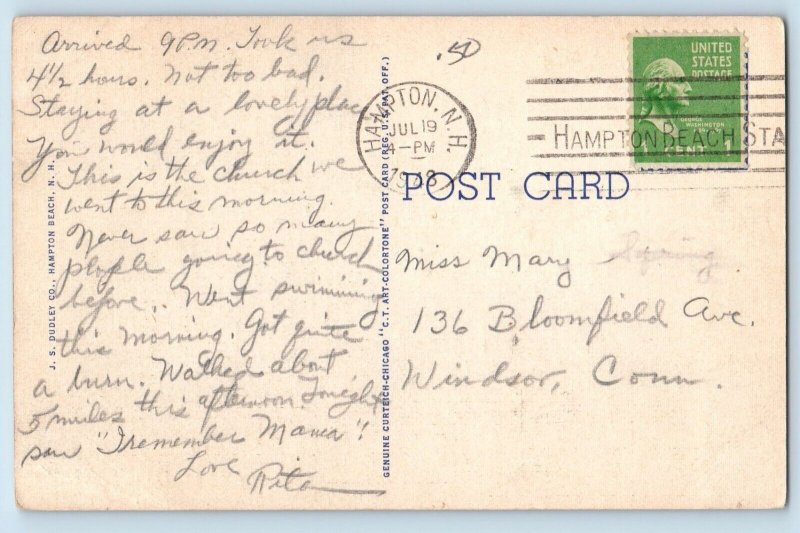 Arrived 9 P.M. Took us
4½ hours. Not too bad.
Staying at a lovely place
You would enjoy it.
This is the church we
went to this morning.
Never saw so many
people going to church
before. Went swimming
this morning. Got quite
a burn. Walked about
5 miles this afternoon. Tonight
saw "I remember Mama"!
Love
Rita
J. S. DUDLEY CO., HAMPTON BEACH, N. H.
GENUINE CURTEICH-CHICAGO "C.T. ART-COLORTONE" POST CARD (REG. U.S. PAT. OFF.)
.50
HAMPTON, N.H.
JUL 19
4-PM
1948
HAMPTON BEACH STA
UNITED
STATES
POSTAGE
GEORGE WASHINGTON
POST CARD
Miss Mary
136 Bloomfield Ave.
Windsor, Conn.